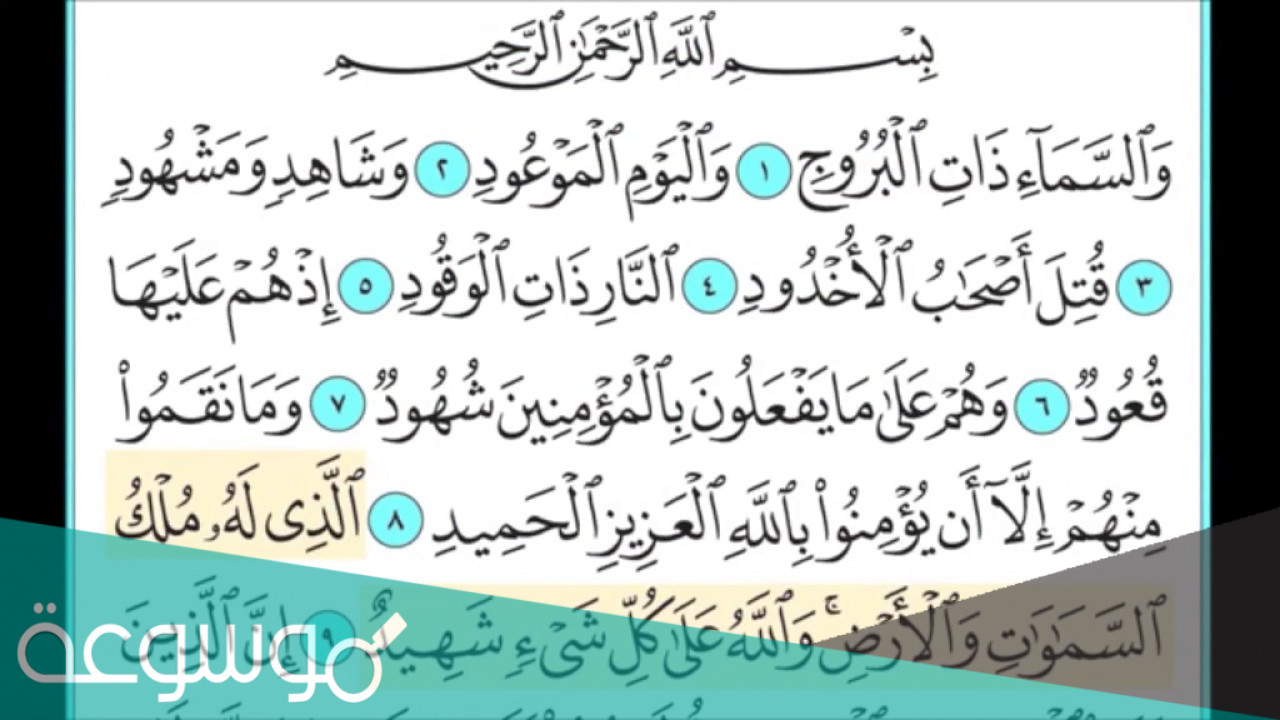 بِسْمِ ٱللَّهِ ٱلرَّحْمَٰنِ ٱلرَّحِيمِ
وَٱلسَّمَآءِ ذَاتِ ٱلْبُرُوجِ ١ وَٱلْيَوْمِ ٱلْمَوْعُودِ ٢ وَشَاهِدٍ وَمَشْهُودٍ
٣ قُتِلَ أَصْحَٰبُ ٱلْأُخْدُودِ ٤ ٱلنَّارِ ذَاتِ ٱلْوَقُودِ ٥ إِذْ هُمْ عَلَيْهَا
قُعُودٌ ٦ وَهُمْ عَلَىٰ مَا يَفْعَلُونَ بِٱلْمُؤْمِنِينَ شُهُودٌ ٧ وَمَا نَقَمُوا۟
مِنْهُمْ إِلَّآ أَن يُؤْمِنُوا۟ بِٱللَّهِ ٱلْعَزِيزِ ٱلْحَمِيدِ ٨ ٱلَّذِى لَهُۥ مُلْكُ
ٱلسَّمَٰوَٰتِ وَٱلْأَرْضِ ۚ وَٱللَّهُ عَلَىٰ كُلِّ شَىْءٍ شَهِيدٌ ٩ إِنَّ ٱلَّذِينَ
موسوعة